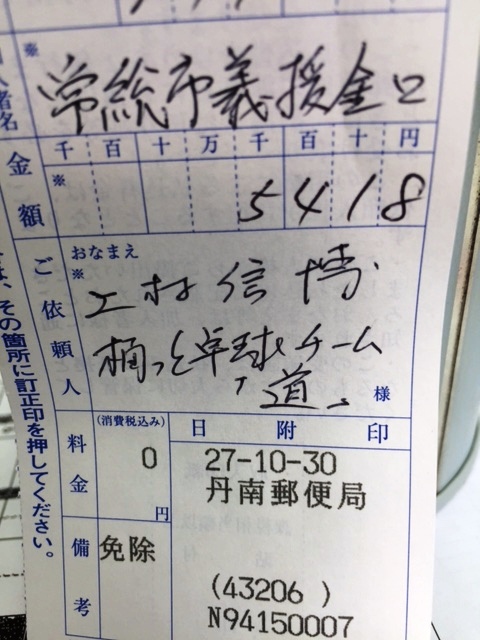 ※
常総市義援金口
金額
千 百 十 万 千 百 十 円
※
5 4 1 8
ご依頼人
おなまえ
※
工村信博
卓球チーム
道
様
料金
(消費税込み)
0
円
備考
免除
日 附 印
27-10-30
丹南郵便局
(43206 )
N94150007
は、その箇所に訂正印を押してください。